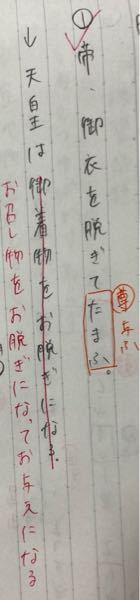 ①帝、御衣を脱ぎてたまふ。
尊 与ふ
↓天皇は御着物をお脱ぎになる。
お召し物をお脱ぎになってお与えになる